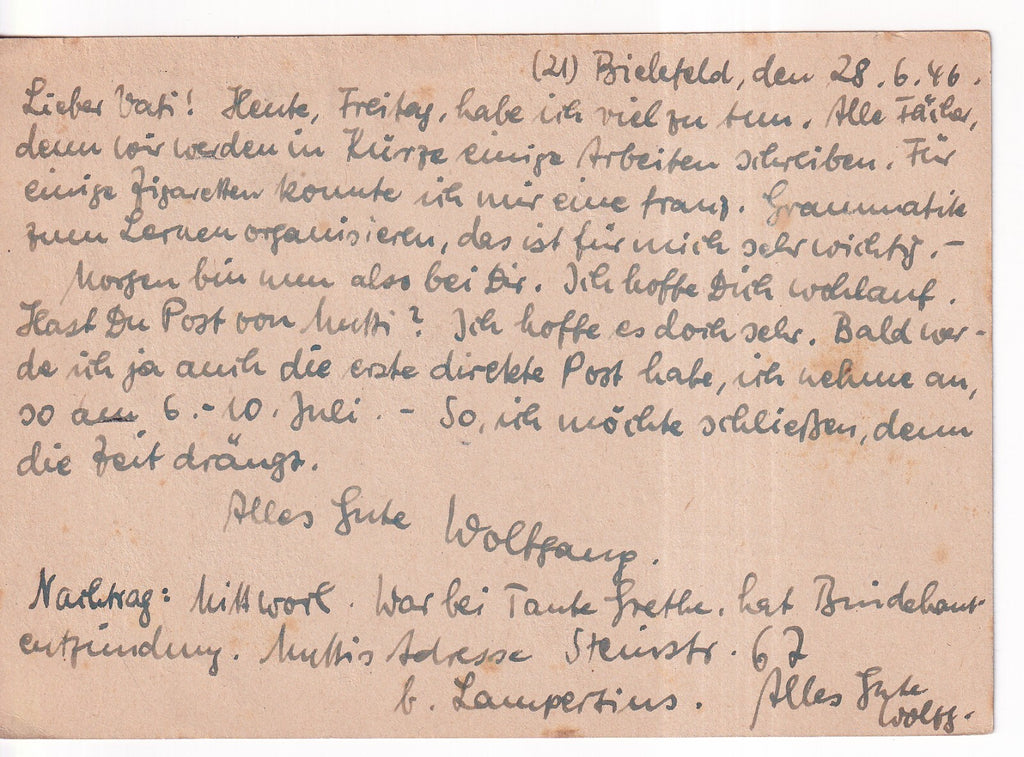 (21) Bielefeld, den 28.6.46.
Lieber Vati! Heute, Freitag, habe ich viel zu tun. Alle Fächer,
denn wir werden in Kürze einige Arbeiten schreiben. Für
einige Zigaretten konnte ich mir eine franz. Grammatik
zum Lernen organisieren, das ist für mich sehr wichtig. –
Morgen bin nun also bei Dir. Ich hoffe Dich wohlauf.
Hast Du Post von Mutti? Ich hoffe es doch sehr. Bald wer-
de ich ja auch die erste direkte Post habe, ich nehme an,
so am 6.-10. Juli. – So, ich möchte schließen, denn
die Zeit drängt.
Alles Gute Wolfgang.
Nachtrag: Mittwoch. War bei Tante Grethe, hat Bindehaut-
entzündung. Muttis Adresse Steinstr. 67
b. Lampertius. Alles Gute
Wolfg.